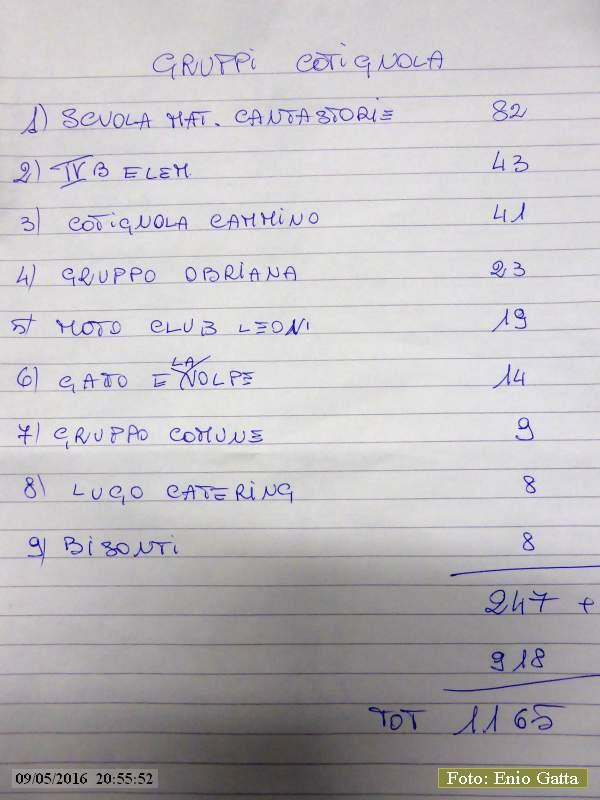 GRUPPI COTIGNOLA
1) SCUOLA MAT. CANTASTORIE 82
2) IV B ELEM 43
3) COTIGNOLA CAMMINO 41
4) GRUPPO OBRIANA 23
5) MOTO CLUB LEONI 19
6) GATTO E LA VOLPE 14
7) GRUPPO COMUNE 9
8) LUGO CATERING 8
9) BISONTI 8
247 +
918
TOT 1165
09/05/2016 20:55:52
Foto: Enio Gatta